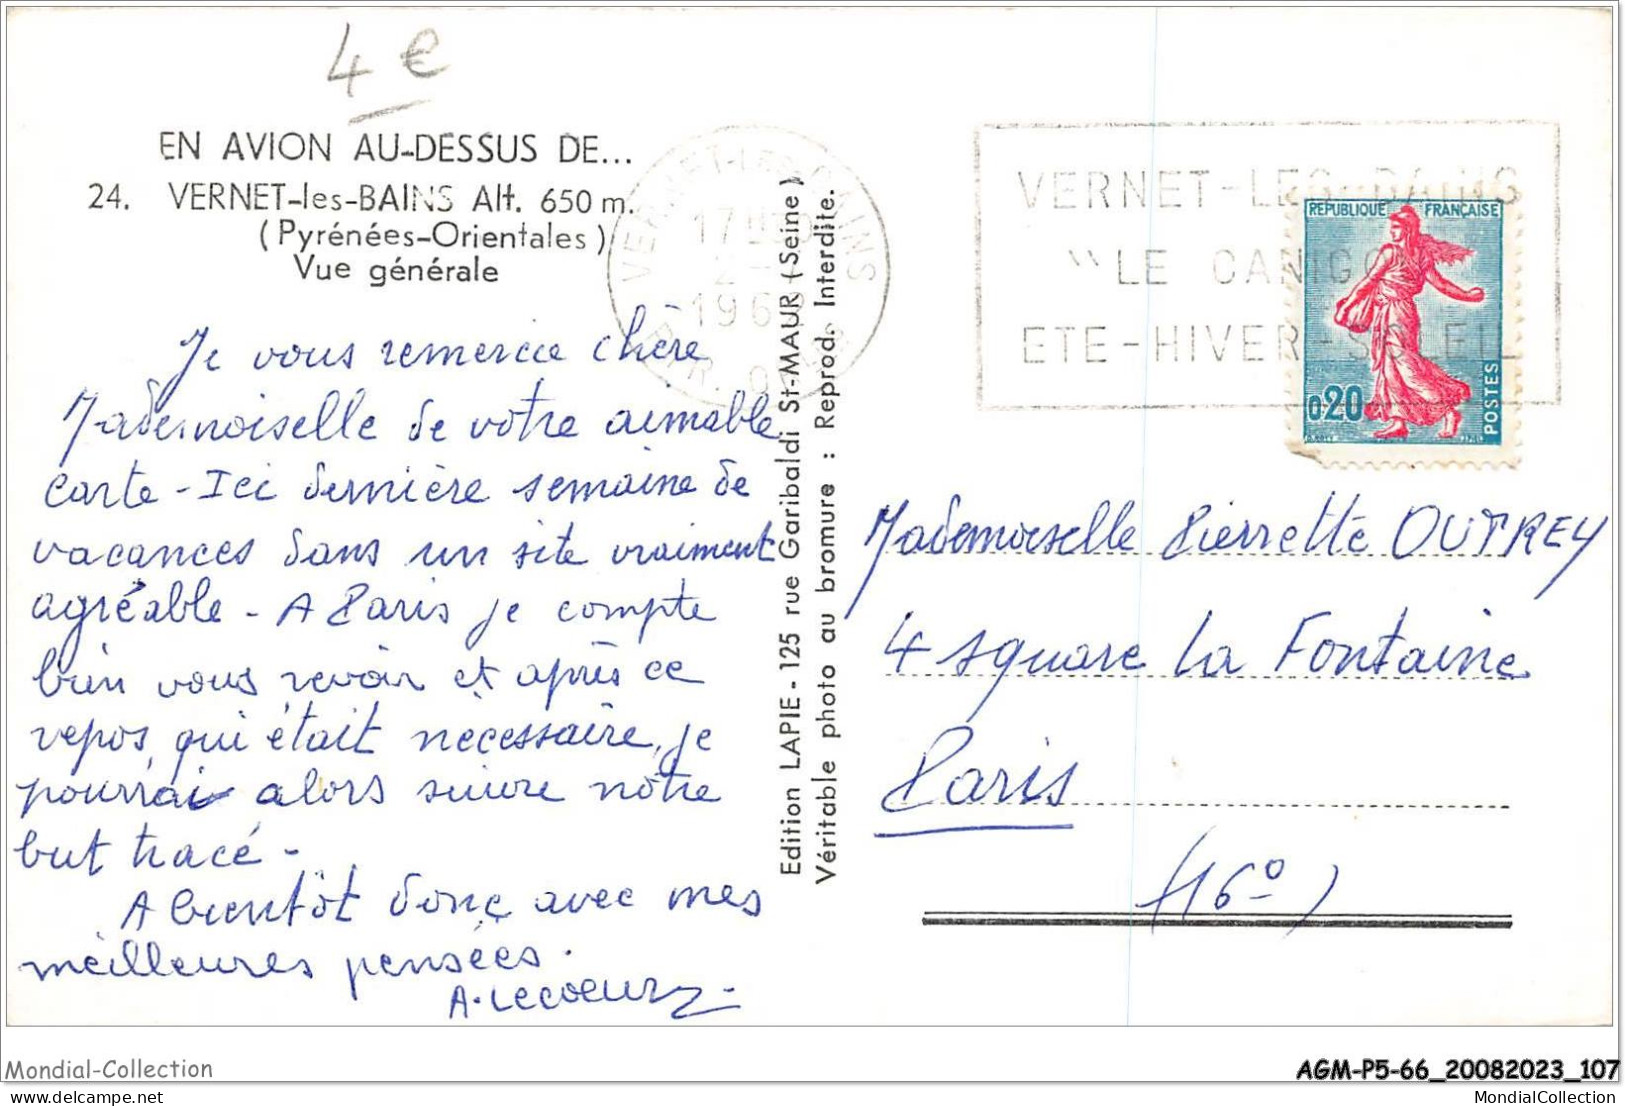 4 €
EN AVION AU-DESSUS DE...
24. VERNET-les-BAINS Alt. 650 m.
(Pyrénées-Orientales)
Vue générale
Je vous remercie chère
Mademoiselle de votre aimable
carte - Ici dernière semaine de
vacances dans un site vraiment
agréable - A Paris je compte
bien vous revoir et après ce
repos, qui était nécessaire, je
pourrai alors suivre notre
but tracé -
A bientôt donc avec mes
meilleures pensées.
A. Lecoeur
Edition LAPIE - 125 rue Garibaldi St-MAUR (Seine)
Véritable photo au bromure : Reprod. Interdite.
VERNET-LES-BAINS
1960
PYR. OR.
VERNET-LES-BAINS
"LE CANIGOU
ETE-HIVER-SOLEIL
REPUBLIQUE FRANÇAISE
0,20
POSTES
Mademoiselle Pierrette OUTREY
4 square La Fontaine
Paris
(16º)
Mondial-Collection
AGM-P5-66_20082023_107
MondialCollection